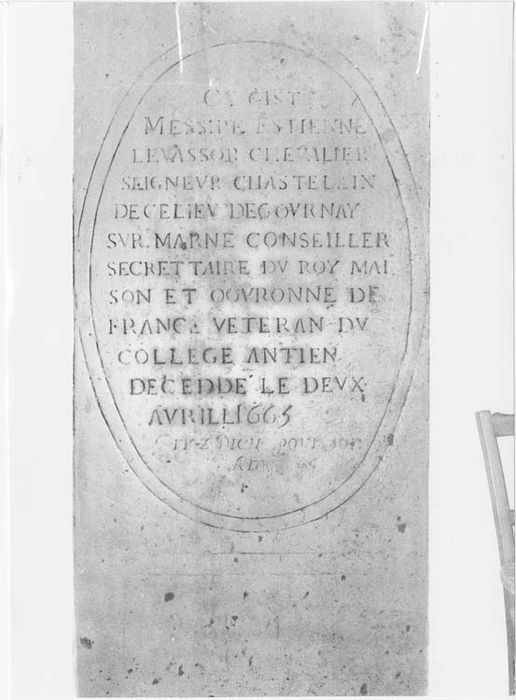 CY GIST
MESSIRE ESTIENNE
LEVASSOR CHEVALIER
SEIGNEVR CHASTELLIN
DE CE LIEV DE GOVRNAY
SVR MARNE CONSEILLER
SECRETTAIRE DV ROY MAI
SON ET COVRONNE DE
FRANCE VETERAN DV
COLLEGE ANTIEN
DECEDDÉ LE DEVX
AVRILL 1665
Priez Dieu pour son
Ame